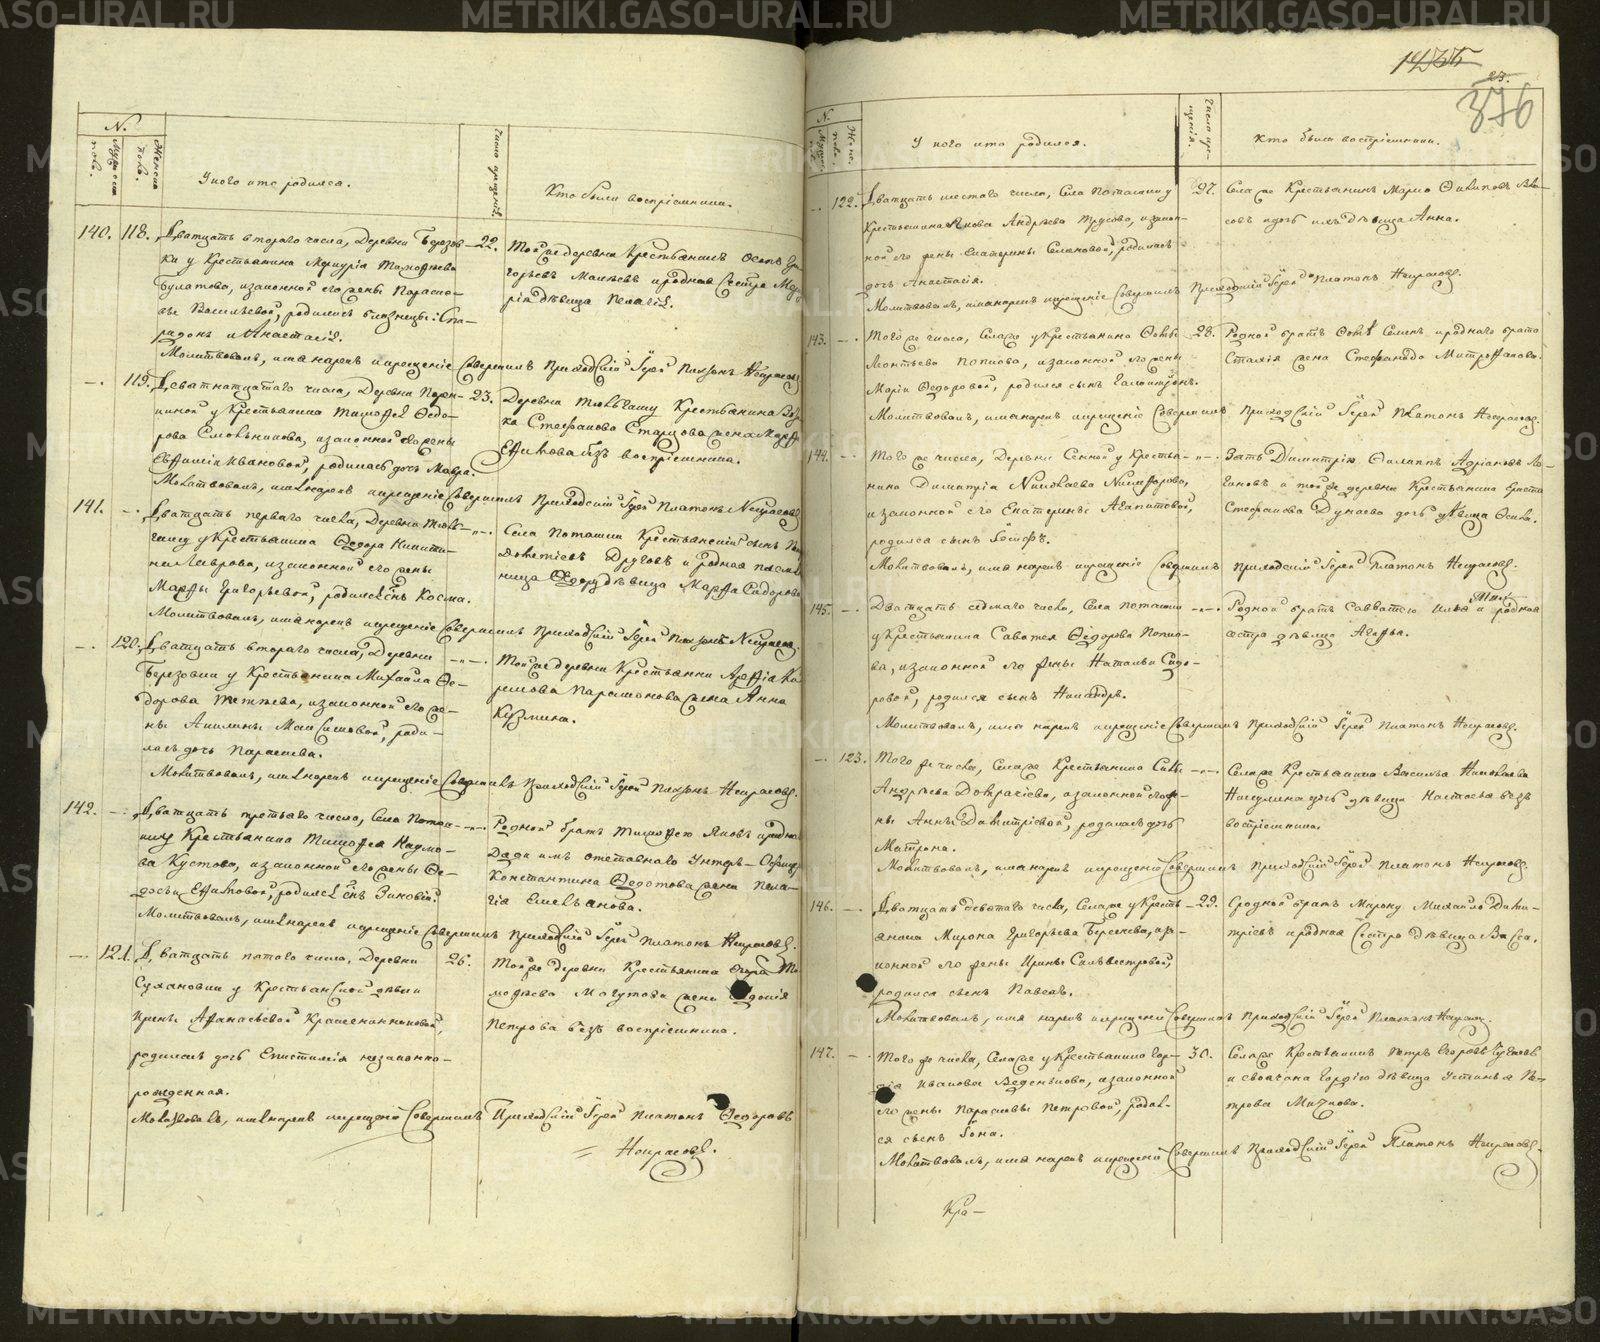 METRIKI.GASO-URAL.RU
1455
27.
376
N.
Мужеска пола.
Женска пола.
У кого кто родился.
Число крещенія.
Кто были воспріемники.
140. 118. Дватцать втораго числа, Деревни Березов-
ки у Крестьянина Меркурія Тимофеева
Булатова, и законной его жены Параско-
вьи Васильевой, родились близнецы: Спи-
ридонъ и Анастасія.
22. Той же деревни Крестьянинъ Осипъ Гри-
горьевъ и родная сестра Мерку-
рія дѣвица Пелагія.
Молитвовалъ, имя нарекъ и крещеніе совершилъ Приходскій Іерей Платонъ Некрасовъ
119. Деватнатцатаго числа, Деревни
у Крестьянина Тимофея Ѳедо-
рова и законной его жены
Евфиміи Ивановой, родилась дочь Мавра.
23. Деревни Крестьянина
Стефанова Старцова жена Марфа
Ефимова безъ воспріемника.
Молитвовалъ, имя нарекъ и крещеніе совершилъ Приходскій Іерей Платонъ Некрасовъ
141. Дватцать перваго числа, Деревни
у Крестьянина Ѳедора Никити-
на Лаврова, и законной его жены
Марфы Григорьевой, родился сынъ Косма.
Села Поташки Крестьянскій сынъ
Друговъ и родная племян-
ница Ѳедору дѣвица Марфа Сидорова
Молитвовалъ, имя нарекъ и крещеніе совершилъ Приходскій Іерей Платонъ Некрасовъ.
120. Дватцать втораго числа, Деревни
Березовки у Крестьянина Михаила Ѳе-
дорова и законной его же-
ны Акилины Максимовой, роди-
лась дочь Параскева.
Той же деревни Крестьянина Арефія
Парамонова жена Анна
Кузмина.
Молитвовалъ, имя нарекъ и крещеніе совершилъ Приходскій Іерей Платонъ Некрасовъ.
142. Дватцать третьяго числа, Села Поташ-
ки у Крестьянина Тимофея Наумо-
ва Кустова, и законной его жены Ѳе-
досьи Ефимовой, родился сынъ Зиновій.
Родной братъ Тимофею Яковъ и родна
Дяди имъ отставнаго Унтеръ-Офицера
Константина Ѳедотова жена Пела-
гія Емельянова.
Молитвовалъ, имя нарекъ и крещеніе совершилъ Приходскій Іерей Платонъ Некрасовъ.
121. Дватцать пятаго числа, Деревни
Сухановки у Крестьянской дѣвки
Ирины Афанасьевой Крашенинниковой,
родилась дочь Епистимія незаконно-
рожденная.
26. Той же деревни Крестьянина Ти-
мофеева жена
Петрова безъ воспріемника.
Молитвовалъ, имя нарекъ и крещеніе совершилъ Приходскій Іерей Платонъ Ѳедоровъ
Некрасовъ.
N.
Мужес. пол.
Женс. пола.
У кого кто родился.
Число кре-
щенія.
Кто были воспріемники.
122. Дватцать шестаго числа, Села Поташки у
Крестьянина Якова Андрѣева Трусова, и закон-
ной его жены Екатерины Семеновой, родилась
дочь Анастасія.
27. Села же Крестьянинъ Марко Филиповъ Вла-
совъ и дочь имъ дѣвица Анна.
Молитвовалъ, имя нарекъ и крещеніе совершилъ Приходскій Іерей Платонъ Некрасовъ.
143. Того же числа, Села же у Крестьянина
Леонтьева Попкова, и законной его жены
Маріи Ѳедоровой, родился сынъ Галактіонъ.
28. Родной братъ Семенъ и роднаго брата
жена Стефанида Митрофанова.
Молитвовалъ, имя нарекъ и крещеніе совершилъ Приходскій Іерей Платонъ Некрасовъ.
144. Того же числа, Деревни Сенной у Крестья-
нина Димитрія Николаева Никифорова,
и законной его Екатерины Агапитовой,
родился сынъ Іосифъ.
Зять Димитрію Филиппъ Адріановъ Ло-
гиновъ и той же деревни Крестьянина
Стефанова Дунаева дочь дѣвица Фекла.
Молитвовалъ, имя нарекъ и крещеніе совершилъ Приходскій Іерей Платонъ Некрасовъ.
145. Дватцать седмаго числа, Села Поташки
у Крестьянина Саватея Ѳедорова Попко-
ва, и законной его жены Натальи Сидо-
ровой, родился сынъ Никандръ.
Родной братъ Савватею Илья и родная
сестра дѣвица Агафья.
Молитвовалъ, имя нарекъ и крещеніе совершилъ Приходскій Іерей Платонъ Некрасовъ.
123. Того же числа, Села же Крестьянина Силы
Андрѣева и законной его же-
ны Анны Димитріевой, родилась дочь
Матрона.
Села же Крестьянина Василья Николаева
Никулина дочь дѣвица Настасья безъ
воспріемника.
Молитвовалъ, имя нарекъ и крещеніе совершилъ Приходскій Іерей Платонъ Некрасовъ.
146. Дватцать девятаго числа, Села же у Кресть-
янина Мирона Григорьева Берсенева, и за-
конной его жены Ирины Сильвестровой,
родился сынъ Павелъ.
29. Сродной братъ Мирону Михайло Дими-
тріевъ и родная сестра дѣвица Васса.
Молитвовалъ, имя нарекъ и крещеніе совершилъ Приходскій Іерей Платонъ Некрасовъ.
147. Того же числа, Села же у Крестьянина Гор-
дія Иванова Веденькова, и законной
его жены Парасковьи Петровой, родил-
ся сынъ Іона.
30. Села же Крестьянинъ Петръ Егоровъ
и своячена Гордію дѣвица Устинья Пе-
трова
Молитвовалъ, имя нарекъ и крещеніе совершилъ Приходскій Іерей Платонъ Некрасовъ.
Кра-